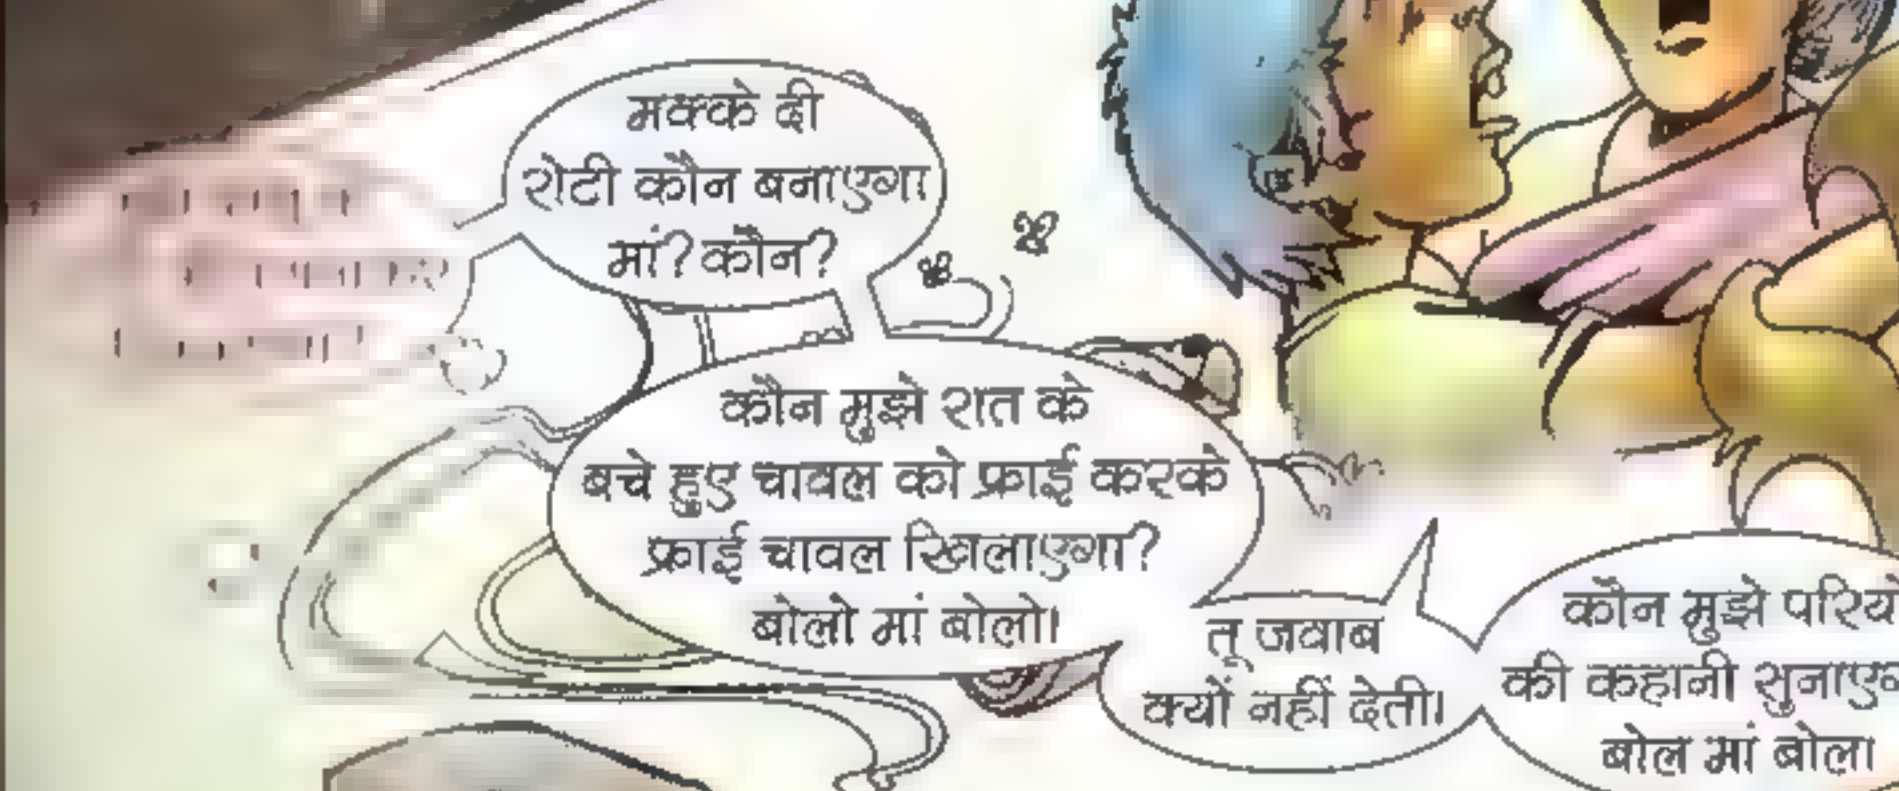 मक्के दी
रोटी कौन बनाएगा
मां? कौन?
कौन मुझे रात के
बचे हुए चावल को फ्राई करके
फ्राई चावल खिलाएगा?
बोलो मां बोलो।
तू जवाब
क्यों नहीं देती।
कौन मुझे
की कहानी
बोल मां बोल।